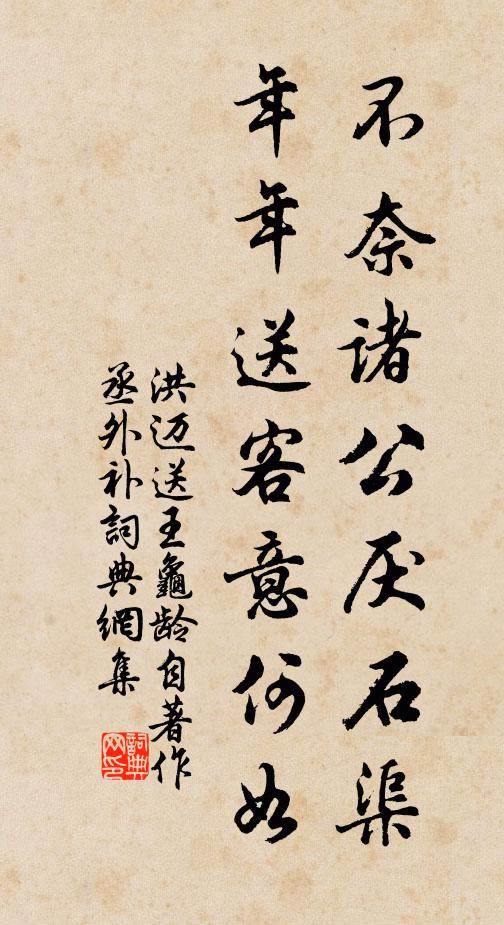 不奈諸公厌石渠
年年送客意何如
洪迈送王龜龄自著作
丞外补詞典網集
詞典网印